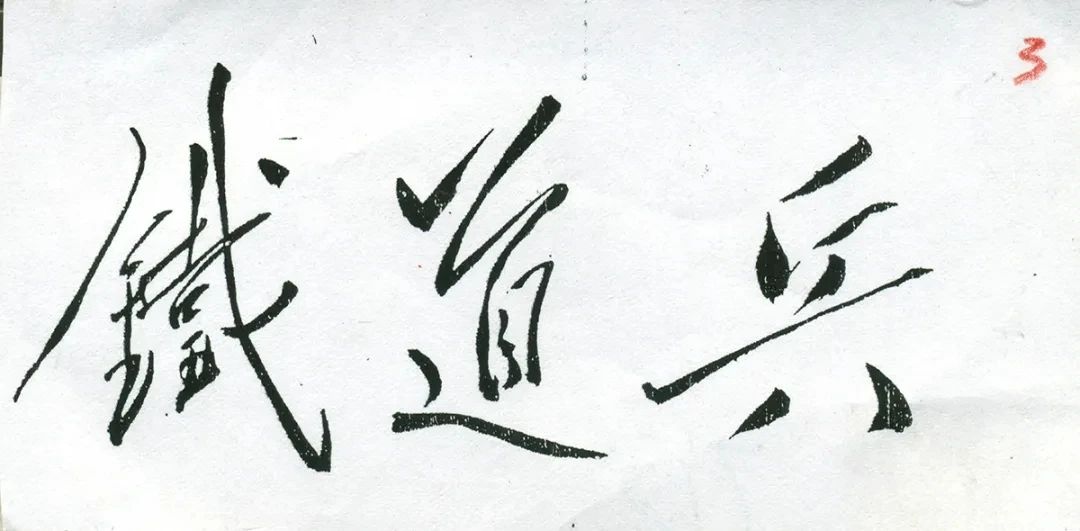 3
鐵道兵